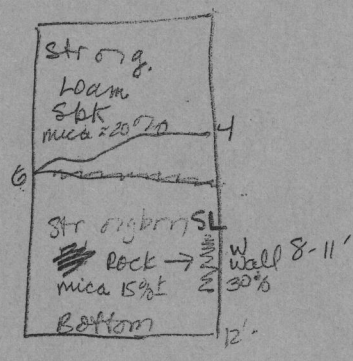 Strong.
Loam
Sbk
mica ≈ 20%
4
6
Strongbrn SL
Rock → W Wall 8-11'
mica 15%± 30%
Bottom
12'